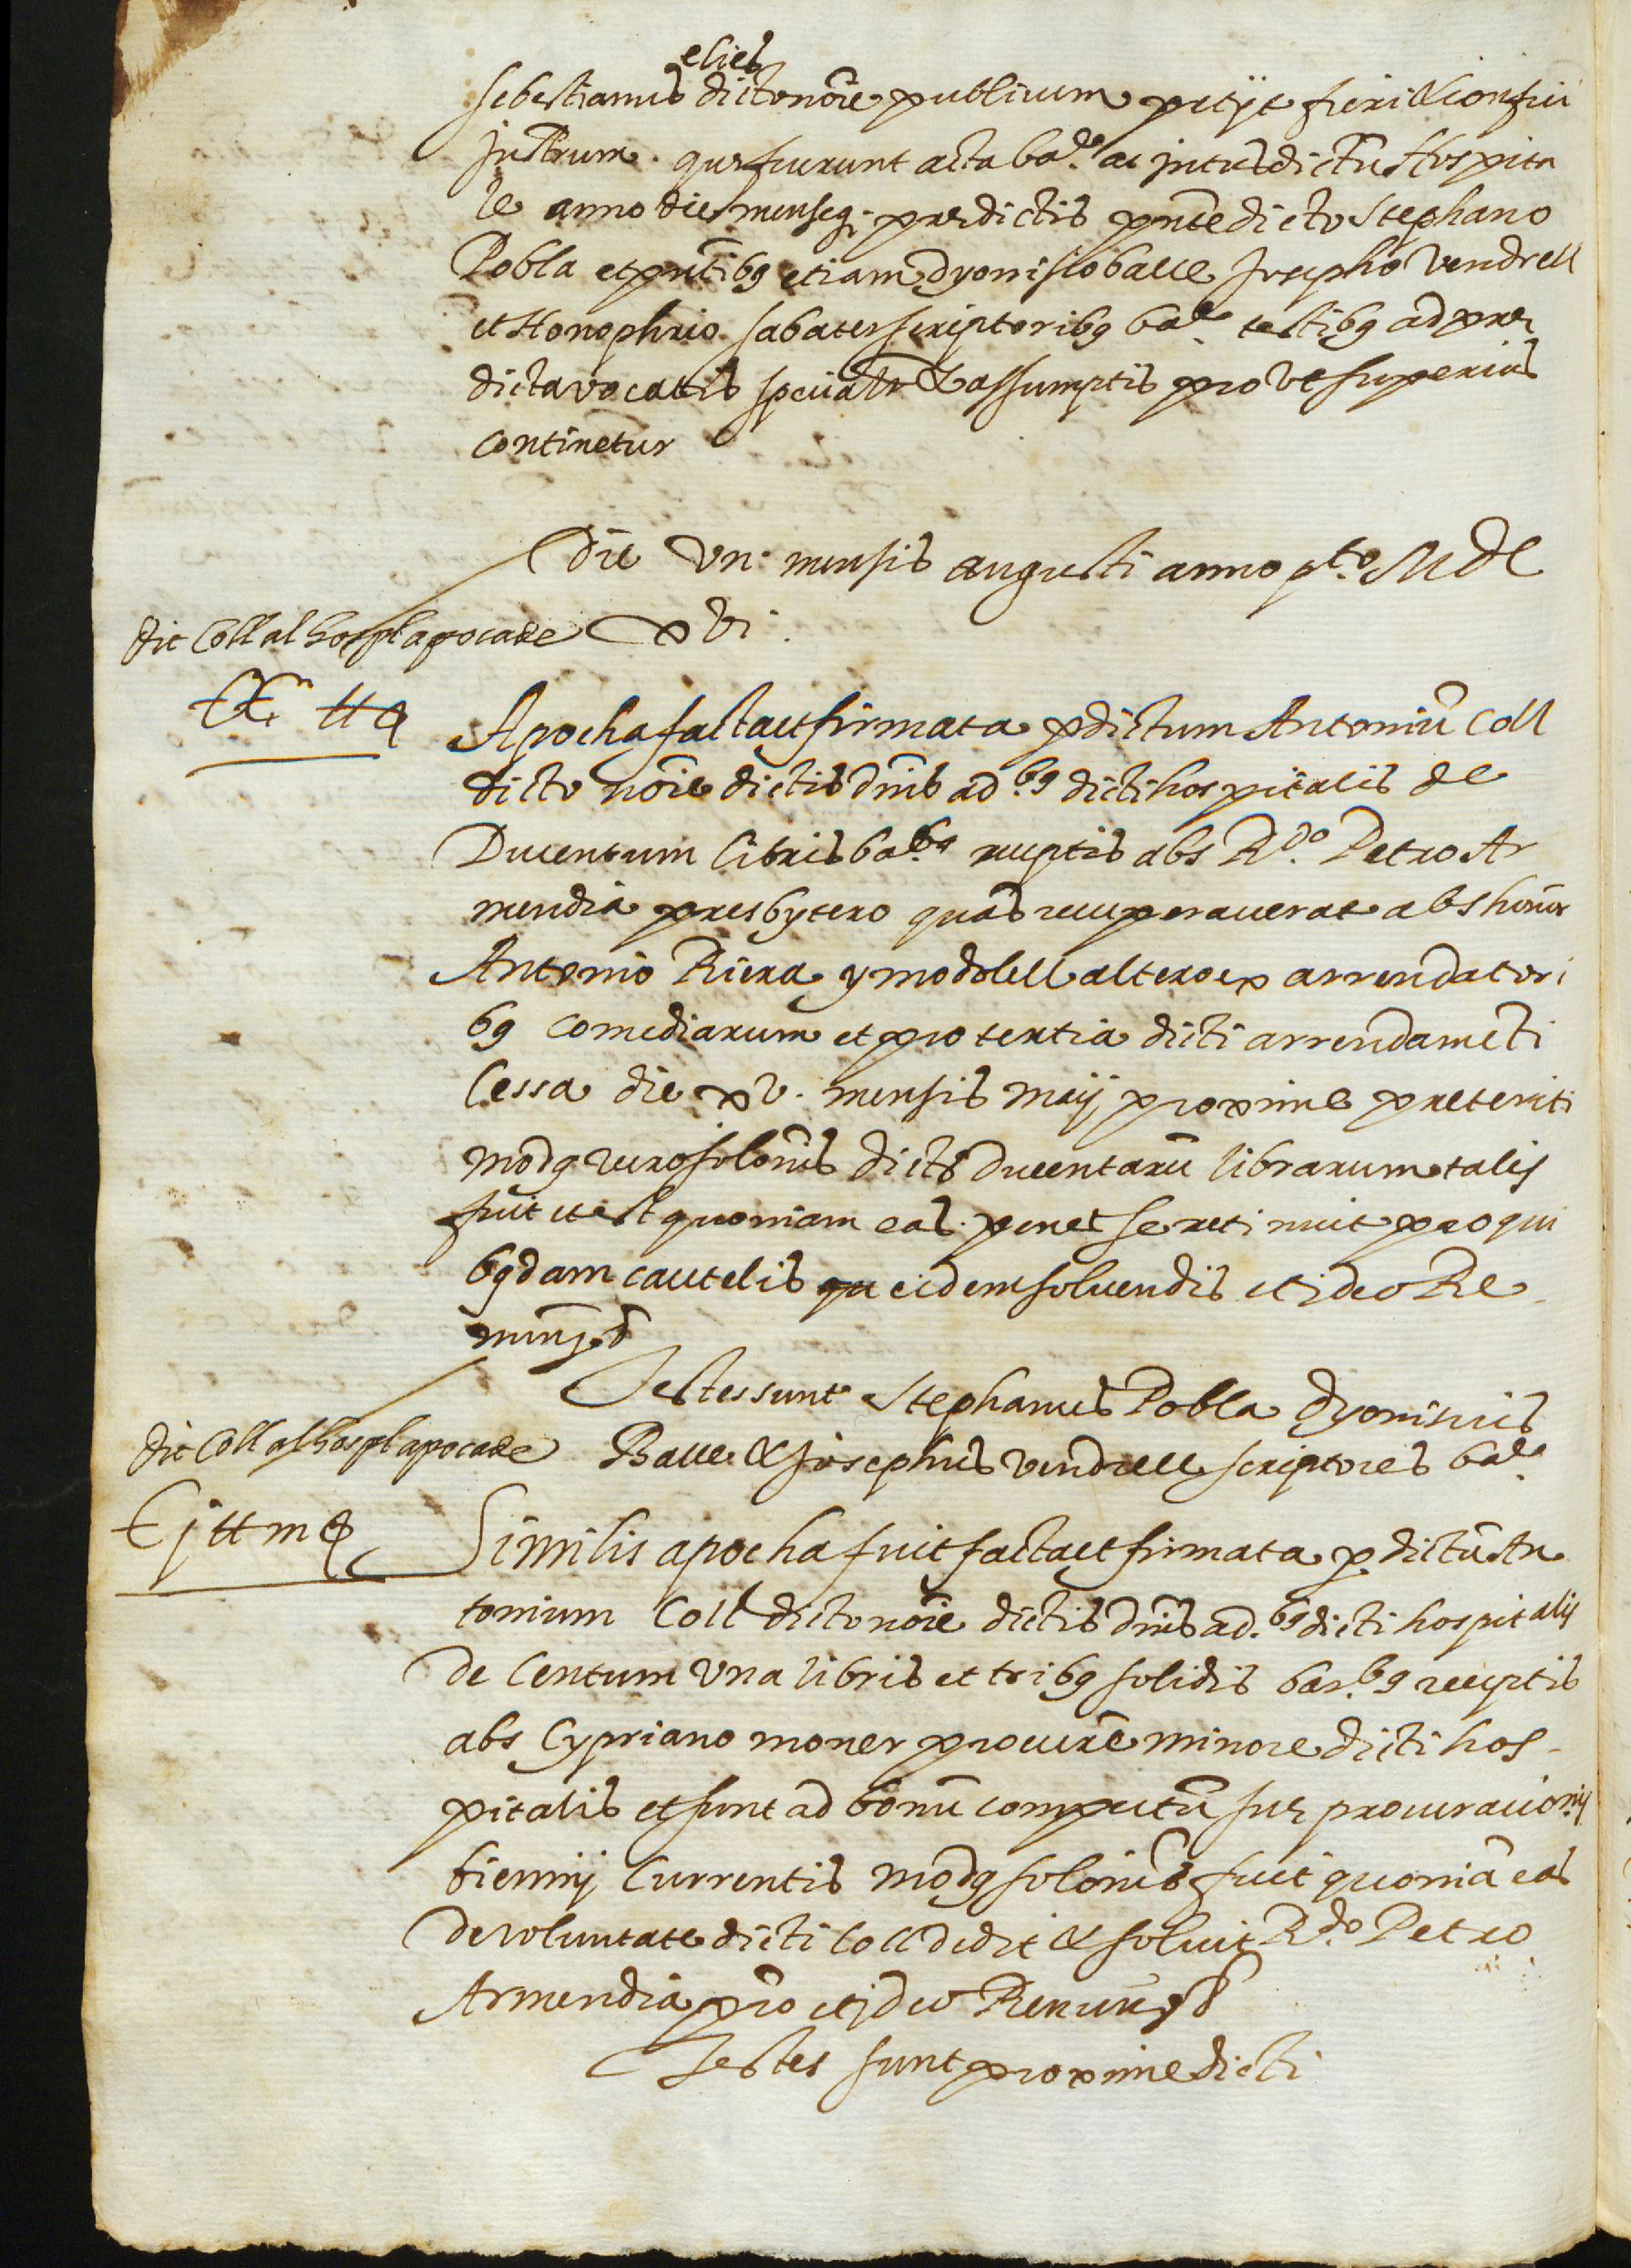 elies
sebestianus dicto noie publicum petijt fieri & confici
Instrum. quȩ fuerunt acta bae. ac intus dictũ Hospita
le anno die menseq. prȩdictis pnte dicto Stephano
Pobla et pntibq etiam dyonisio balle Josepho Vendrell
et Honophrio sabater scriptoribq bae. testibq ad prȩ
dicta vocatis spcialr & assumptis pro vt superius
continetur
Die vn. mensis augusti anno pto. MDC
xvi.
dit Coll al hospl apoca de
CC ll q
Apocha facta et firmata p dictum Antoniũ Coll
dicto noie dictis dnis ad.bq dicti hospitalis de
Ducentum libris babq receptis abs Rdo. Petro Ar
mendia presbytero quas recuperauerat abs honor
Antonio Riera y modolell altero ex arrendatori
bq comediarum et pro tertia dicti arrendameti
Cessa die xv. mensis maij proxime preteriti
modq vero solonis dictȩ ducentarũ librarum talis
fuit et est quoniam eas penes se retinuit pro qui
bqdam cautelis eidem soluendis et ideo Re
nunt. &
Testes sunt Stephanus Pobla dyonisius
Balle & Josephus vendrell scriptores bae.
dit Coll al hospl apoca de
Cj ll iij q
Similis apocha fuit facta et firmata p. dictũ An
tonium Coll dicto noie dictis dnis ad.bq dicti hospitalis
de Centum vna libris et tribq solidis bar.bq receptis
abs Cypriano moner procure minore dicti hos-
pitalis et sunt ad bonũ computũ suȩ procurationis
biennij Currentis modq solonis fuit quoniã eas
de voluntate dicti Coll dedit & soluit Rdo. Petro
Armendia pro et ideo Renun &
Testes sunt proxime dicti